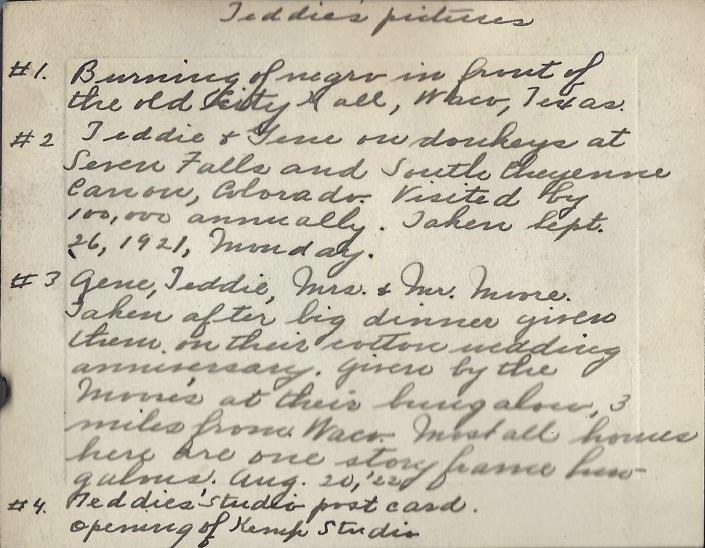 Teddie's pictures
#1. Burning of negro in front of
the old City Hall, Waco, Texas.
#2 Teddie & Gene on donkeys at
Seven Falls and South Cheyenne
Canon, Colorado. Visited by
100,000 annually. Taken Sept.
26, 1921, Monday.
#3 Gene, Teddie, Mrs. & Mr. Moore.
Taken after big dinner given
them on their cotton wedding
anniversary. Given by the
Moores at their bungalow, 3
miles from Waco. Most all homes
here are one story frame bun-
galows. Aug. 20, '22
#4. Teddies' studio post card.
opening of Kemp Studio